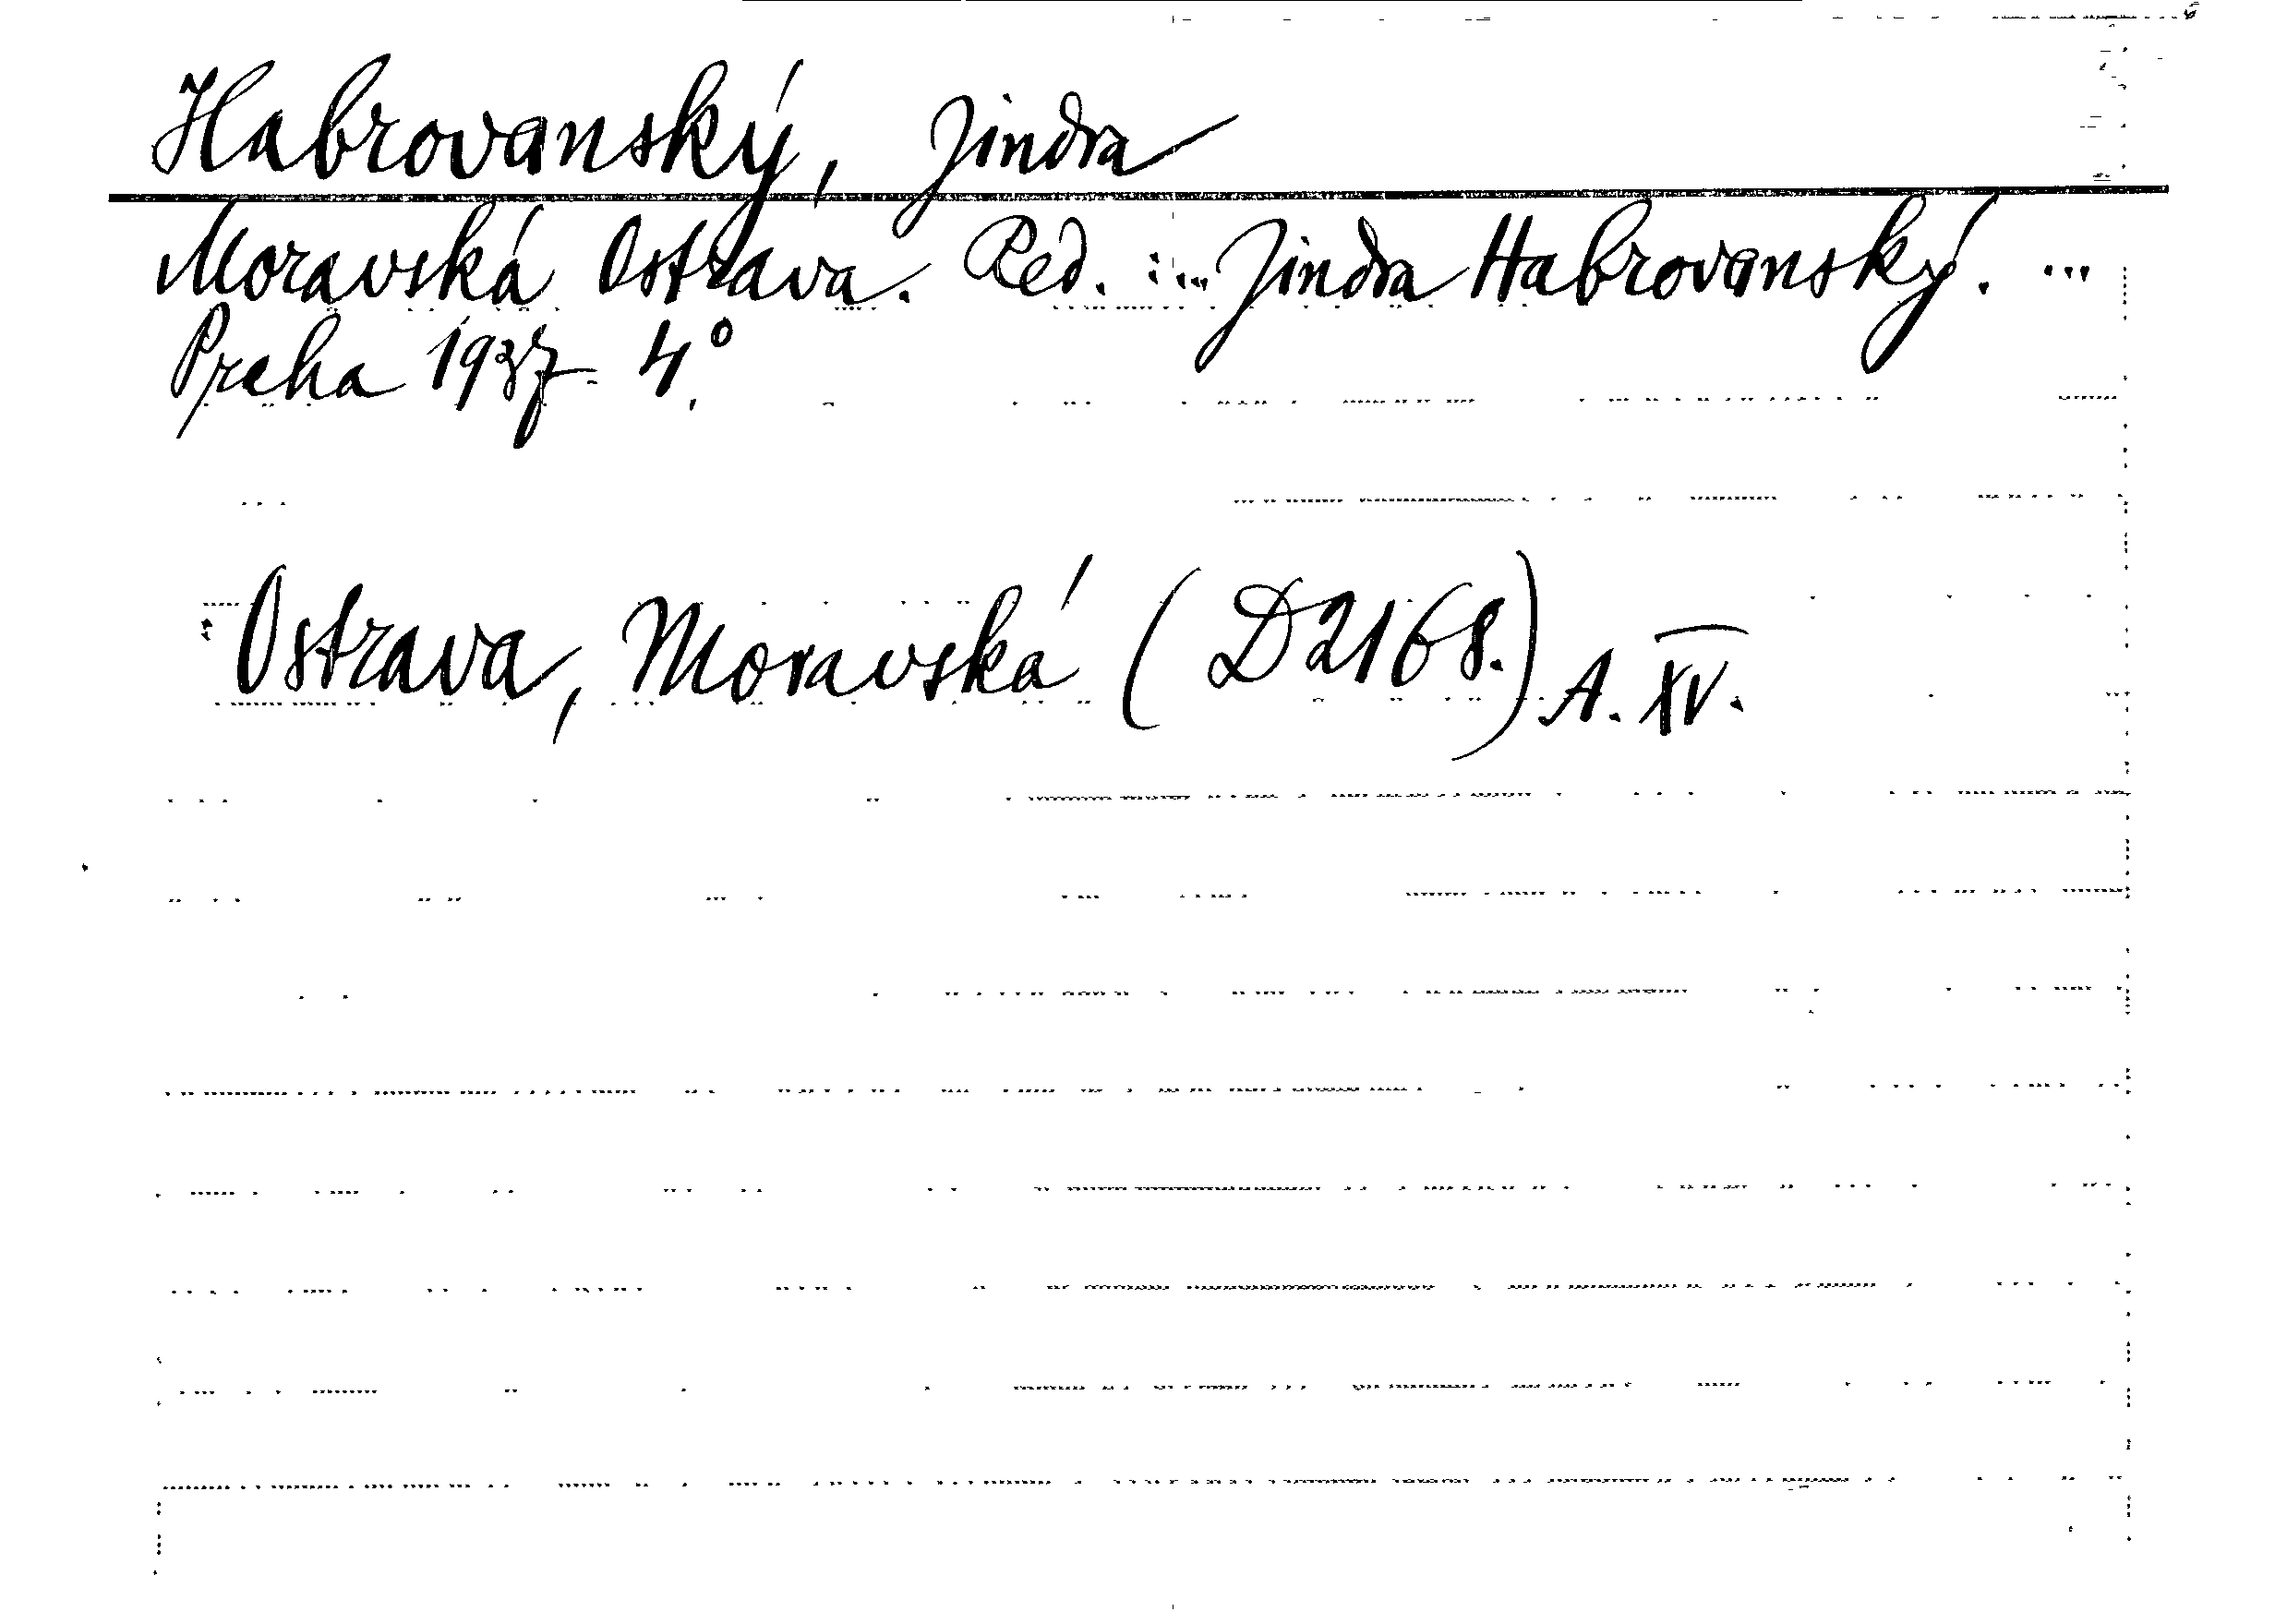 Habrovanský, Jindra
Moravská Ostrava. Red. : ... Jindra Habrovanský. ...
Praha 1937. 4°
Ostrava, Moravská (D 2168.) A. XV.